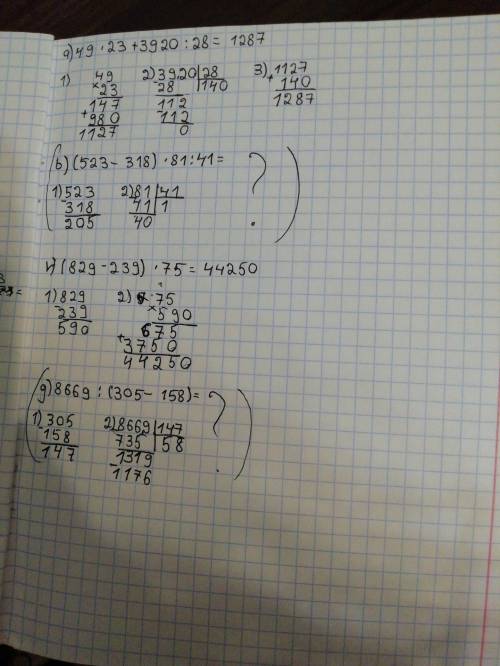 а) 49 · 23 + 3920 : 28 = 1287
1) 49 2) 3920 | 28 3) 1127
× 23 - 28 140 + 140
147 - 112 1287
+ 980 112
1127 0
b) (523 - 318) · 81 : 41 = ?
1) - 523 2) - 81 | 41
318 41 1
205 40
г) (829 - 239) · 75 = 44250
1) - 829 2) 75
239 × 590
590 675
+ 3750
44250
g) 8669 : (305 - 158) = ?
1) - 305 2) - 8669 | 147
158 735 58
147 - 1319
1176